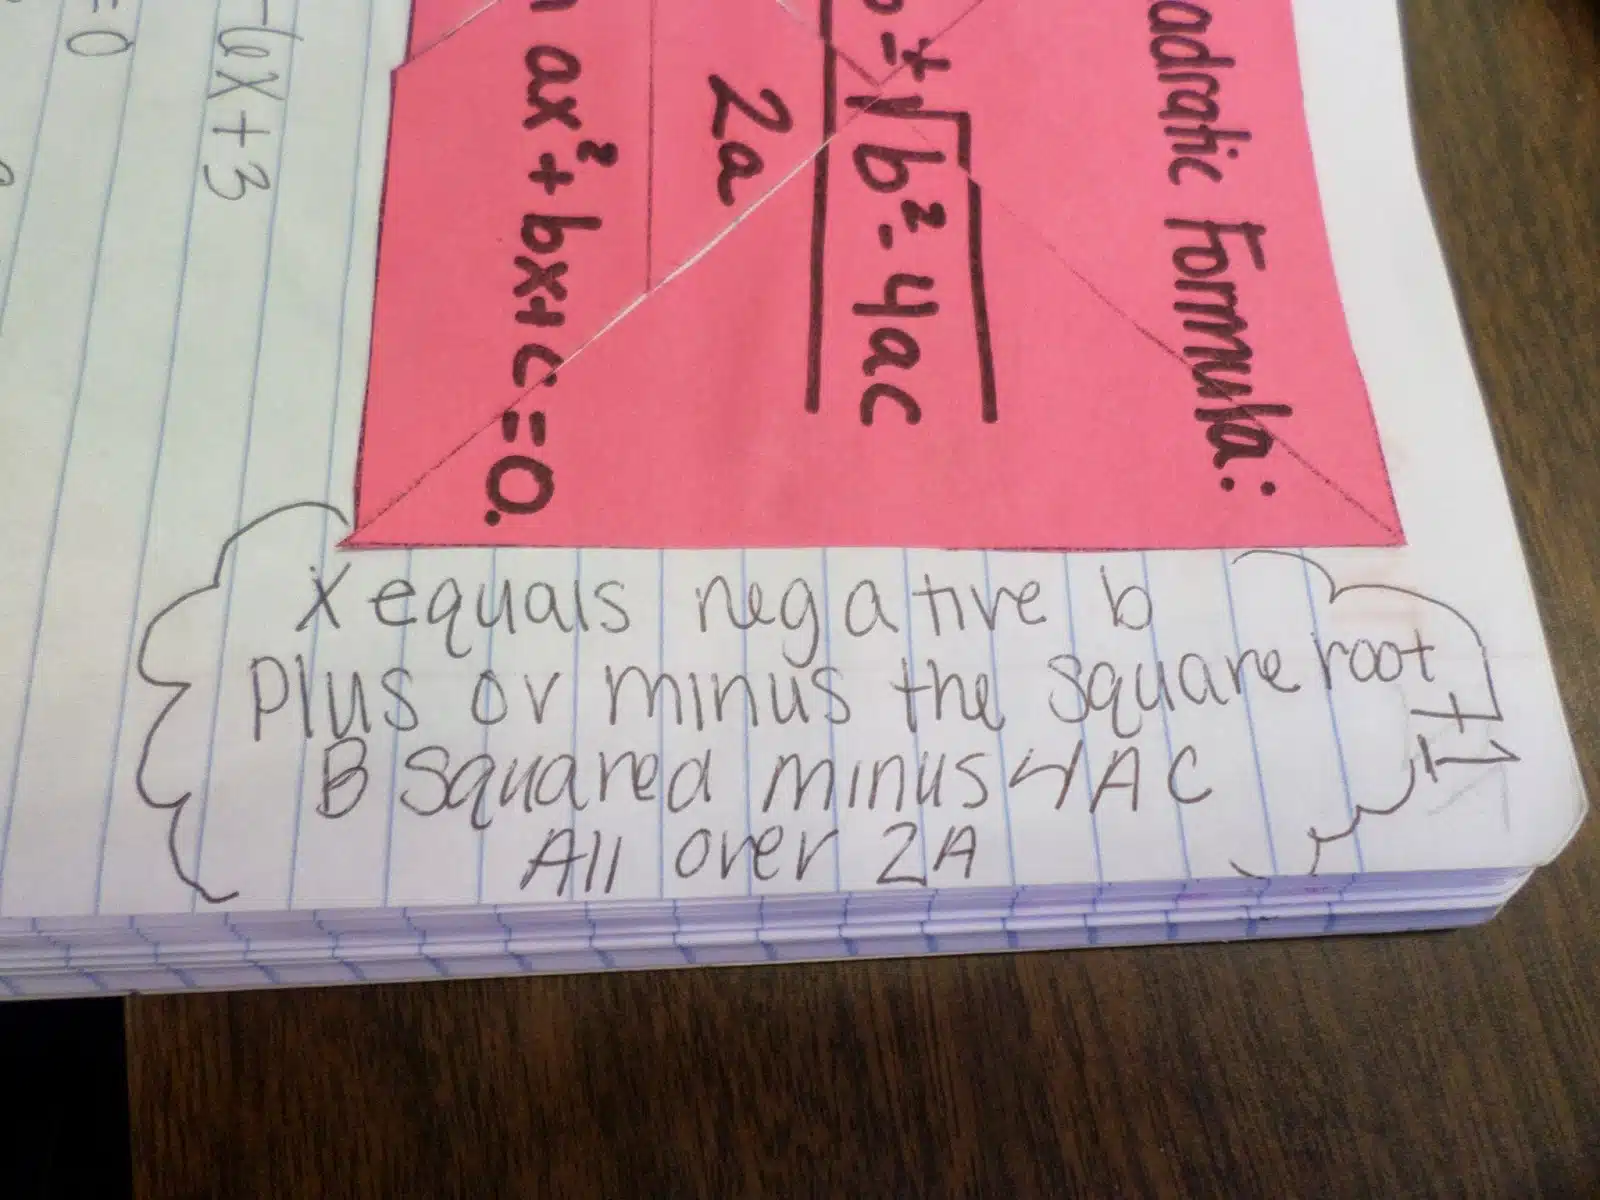 = 0
-6x + 3
adratic Formula:
b ± √b² - 4ac
2a
ax² + bx + c = 0.
x equals negative b
Plus or minus the square root
B squared minus 4AC
All over 2A